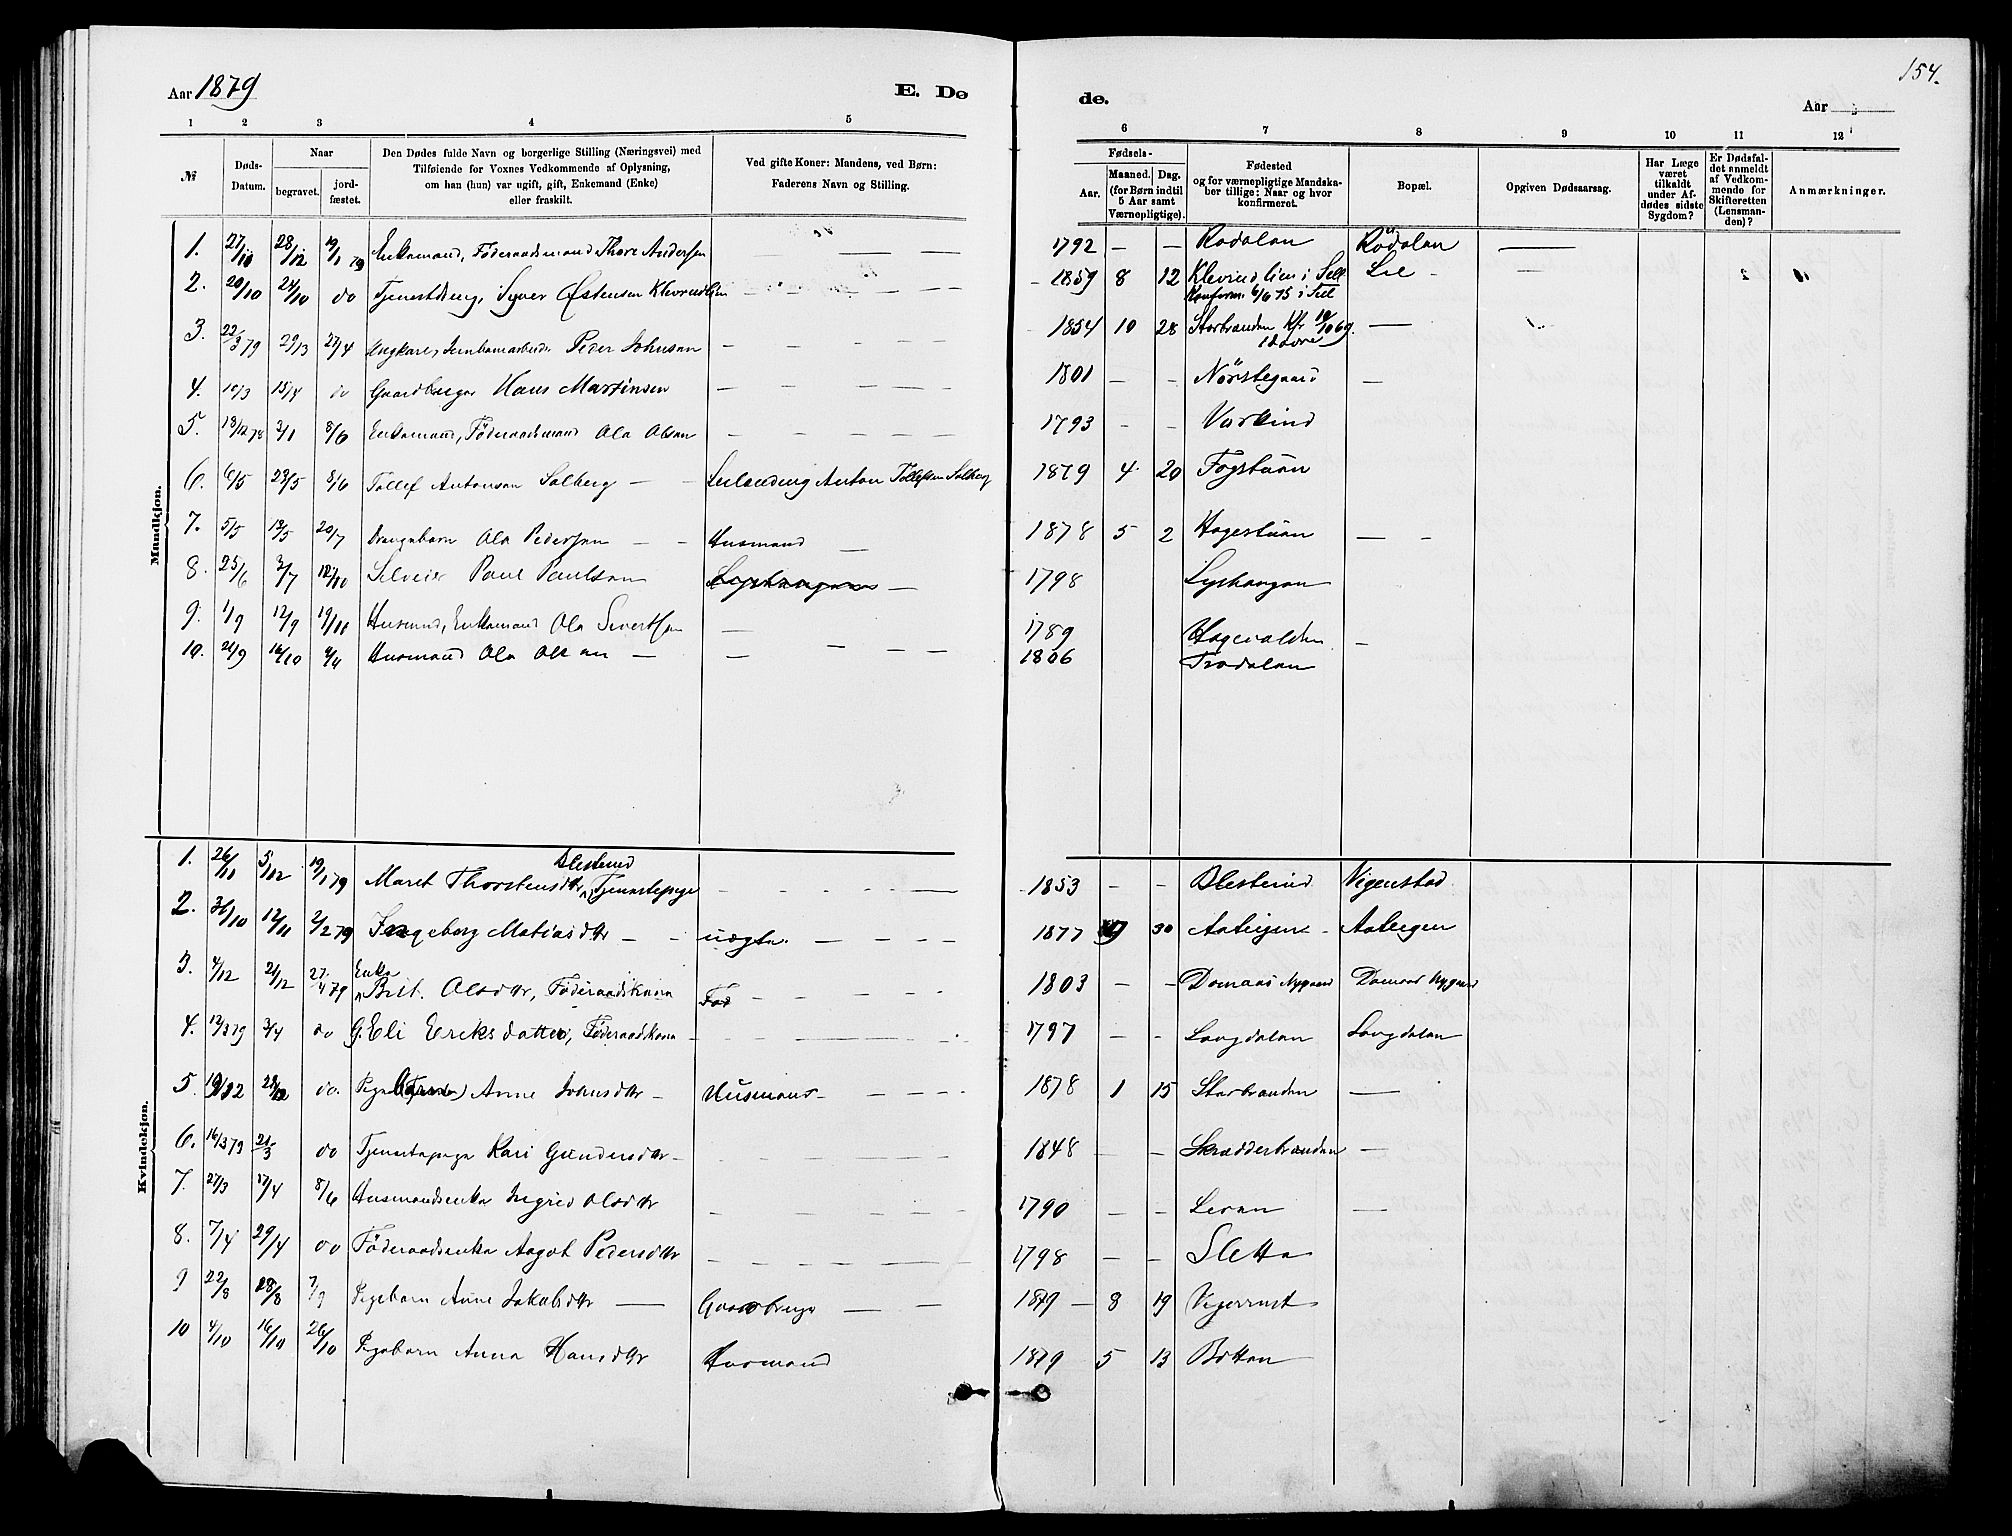 Aar 1879
E. Dø
de.
154.
Aar
1 2 3 4 5
6 7 8 9 10 11 12
№
Døds-Datum.
Naar
begravet.
jord-fæstet.
Den Dødes fulde Navn og borgerlige Stilling (Næringsvei) med
Tilføiende for Voxnes Vedkommende af Oplysning,
om han (hun) var ugift, gift, Enkemand (Enke)
eller fraskilt.
Ved gifte Koner: Mandens, ved Børn:
Faderens Navn og Stilling.
Fødsels-
Aar.
Maaned. Dag.
(for Børn indtil
5 Aar samt
Værnepligtige).
Fødested
og for værnepligtige Mandska-
ber tillige: Naar og hvor
konfirmeret.
Bopæl.
Opgiven Dødsaarsag.
Har Læge
været
tilkaldt
under Af-
dødes sidste
Sygdom?
Er Dødsfal-
det anmeldt
af Vedkom-
mende for
Skifteretten
(Lensman-
den)?
Anmærkninger.
Mandkjøn.
1. 27/10 28/12 19/1 79 Enkemand, Föderaadsmand Thore Andersen — — — 1792 — — Rodalan Rödalan —
2. 20/10 24/10 do Tjenestdreng, Syver Østensen Klevrudlien — — — 1857 8 12 Klevrud lien i Sell Lie —
Konfirm. 6/6 75 i Sell
3. 22/3 79 29/3 27/4 Ungkarl, Jernbanearbeider Peder Johnsen — — — 1854 10 28 Storbranden Kfr 10/10 69. —
i Dovre
4. 10/3 15/4 do Gaardbruger Hans Martinsen — — — 1801 — — Nörstegaard —
5. 18/12 78 2/1 8/6 Enkemand, Föderaadsmand Ola Olsen — — — 1793 — — Varkind
6. 6/5 23/5 8/6 Tollef Antonsen Solberg — — Leilending Anton Tollefsen Solberg 1879 4 20 Fogstuen
7. 5/5 13/5 20/7 Drengebarn Ola Pedersen — — Husmand — 1878 5 2 Hagestuen — —
8. 25/6 3/7 12/10 Selveier Paul Paulsen Lyshaugen — 1798 Lyshaugen
9. 1/9 12/9 19/11 Husmand, Enkemand Ola Sivertsen — 1789 Hagevolden —
10. 24/9 16/10 2/11 Husmand Ola Olsen — — 1806 Trodalan
Kvindekjøn.
1. 26/11 5/12 19/1 79 Maret Thorstensdtr Blesterud Tjenestepige — — — 1853 — — Blesterud Vigenstad
2. 31/10 12/11 2/2 79 Ingeborg Matiasdtr — — uægte. — — 1877 30
3. 4/12 21/12 27/4 79 Enke Brit. Olsdtr, Föderaadskone Fod — — — 1803 — — Domaas Nygaard Domaas Nygaard
4. 12/3 79 3/4 do G. Eli Eriksdatter, Föderaadkone — — — 1797 — — Langdalan Langdalan
5. do. Anne Johnsdtr — Husmand — — 1878 1 15 Storbranden —
6. 16/3 79 21/3 do Tjenestepige Kari Gundersdtr — — — 1848 — — Skrædderbranden —
7. 27/3 17/4 8/6 Husmandsenke Ingrid Olsdtr — — — 1790 — — —
8. 7/4 29/4 do Föderaadsenke Aagot Pedersdtr — — — 1798 — — Sletta
9 22/8 28/8 7/9 Pigebarn Anne Jakobsdtr — Gaardbruger — — 1879 — 8 19 Vigerrust
10 4/10 16/10 26/10 Pigebarn Anna Hansdtr Husmand 1879 5 13 Botten